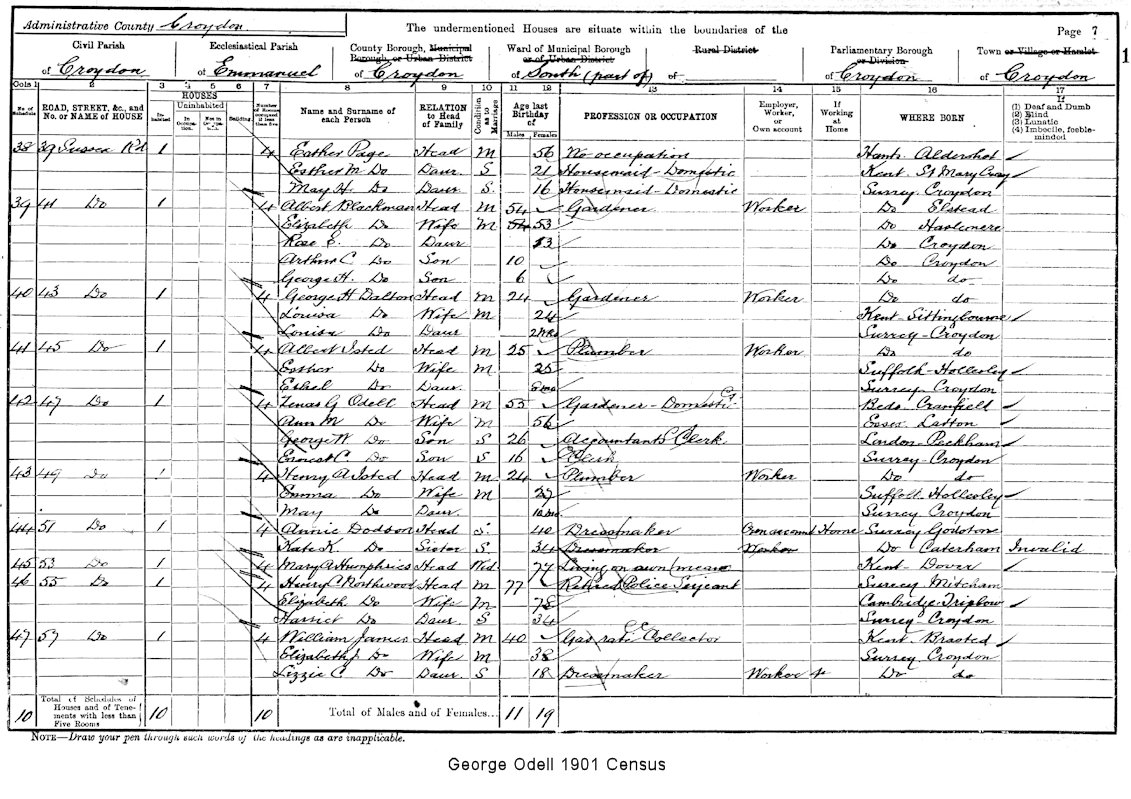 Administrative County Croydon
The undermentioned Houses are situate within the boundaries of the
Page 7
1
Civil Parish of Croydon
Ecclesiastical Parish of Emmanuel
County Borough, Municipal Borough, or Urban District of Croydon
Ward of Municipal Borough or of Urban District of South (part of)
Rural District of
Parliamentary Borough or Division of Croydon
Town or Village or Hamlet of Croydon
Cols 1 2 3 4 5 6 7 8 9 10 11 12 13 14 15 16 17
No. of Schedule
ROAD, STREET, &c., and No. or NAME of HOUSE
HOUSES
Inhabited
Uninhabited
In Occupation.
Not in Occupation.
Building
Number of Rooms occupied if less than five
Name and Surname of each Person
RELATION to Head of Family
Condition as to Marriage
Age last Birthday of
Males
Females
PROFESSION OR OCCUPATION
Employer, Worker, or Own account
If Working at Home
WHERE BORN
If (1) Deaf and Dumb (2) Blind (3) Lunatic (4) Imbecile, feeble-minded
38 39 Sussex Rd 1 4 Esther Page Head M 56 No occupation Hants Aldershot
Esther M. Do Daur. S 21 Housemaid-Domestic Kent St Mary Cray
May H. Do Daur S. 16 Housemaid-Domestic Surrey Croydon
39 41 Do 1 4 Albert Blackman Head M 54 Gardener Worker Do Elstead
Elizabeth Do Wife M 54 53 Do Haslemere
Rose E. Do Daur 13 Do Croydon
Arthur C. Do Son 10 Do Croydon
George H. Do Son 6 Do do
40 43 Do 1 4 George H Dalton Head M 24 Gardener Worker Do do
Louisa Do Wife M 24 Kent-Sittingbourne
Louisa Do Daur 2 wks Surrey-Croydon
41 45 Do 1 4 Albert Isted Head M 25 Plumber Worker Do do
Esther Do Wife M 25 Suffolk-Hollesley
Ethel Do Daur 8 mo Surrey Croydon
42 47 Do 1 4 Zenas G Odell Head M 55 Gardener-Domestic Beds. Cranfield
Ann M. Do Wife M 56 Essex Latton
George W Do Son S 26 Accountants Clerk London-Peckham
Ernest C. Do Son S 16 Clerk Surrey-Croydon
43 49 Do 1 4 Henry A Isted Head M 24 Plumber Worker Do do
Emma Do Wife M 27 Suffolk. Hollesley
May Do Daur. 10 mo. Surrey Croydon
44 51 Do 1 4 Annie Dodson Head S. 40 Dressmaker Own account Home Surrey Godstone
Kate K. Do Sister S 34 Dressmaker Worker Do Caterham Invalid
45 53 Do 1 4 Mary A Humphries Head Wid. 77 Living on own means Kent Dover
46 55 Do 1 4 Henry C Northwood Head M 77 Retired Police Serjeant Surrey Mitcham
Elizabeth Do Wife M 78 Cambridge-Triplow
Harriet Do Daur. S 34 Surrey Croydon
47 57 Do 1 4 William James Head M 40 Gas rate Collector Kent Brasted
Elizabeth J. Do Wife M 38 Surrey. Croydon
Lizzie C. Do Daur S 18 Dressmaker Worker Do do
10 Total of Schedules of Houses and of Tenements with less than Five Rooms 10 10 Total of Males and of Females... 11 19
NOTE—Draw your pen through such words of the headings as are inapplicable.
George Odell 1901 Census